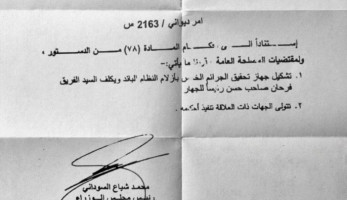 امر ديواني / 2163 س
إستناداً الى احكام المادة (٧٨) من الدستور ،
ولمقتضيات المصلحة العامة مايأتي:-
1. تشكيل جهاز تحقيق الجرائم الخاص بأزلام النظام البائد ويكلف السيد الفريق
فرحان صاحب حسن رئيساً للجهاز
2. تتولى الجهات ذات العلاقة تنفيذ أحكامه.
محمد شياع السوداني
رئيس مجلس الوزراء